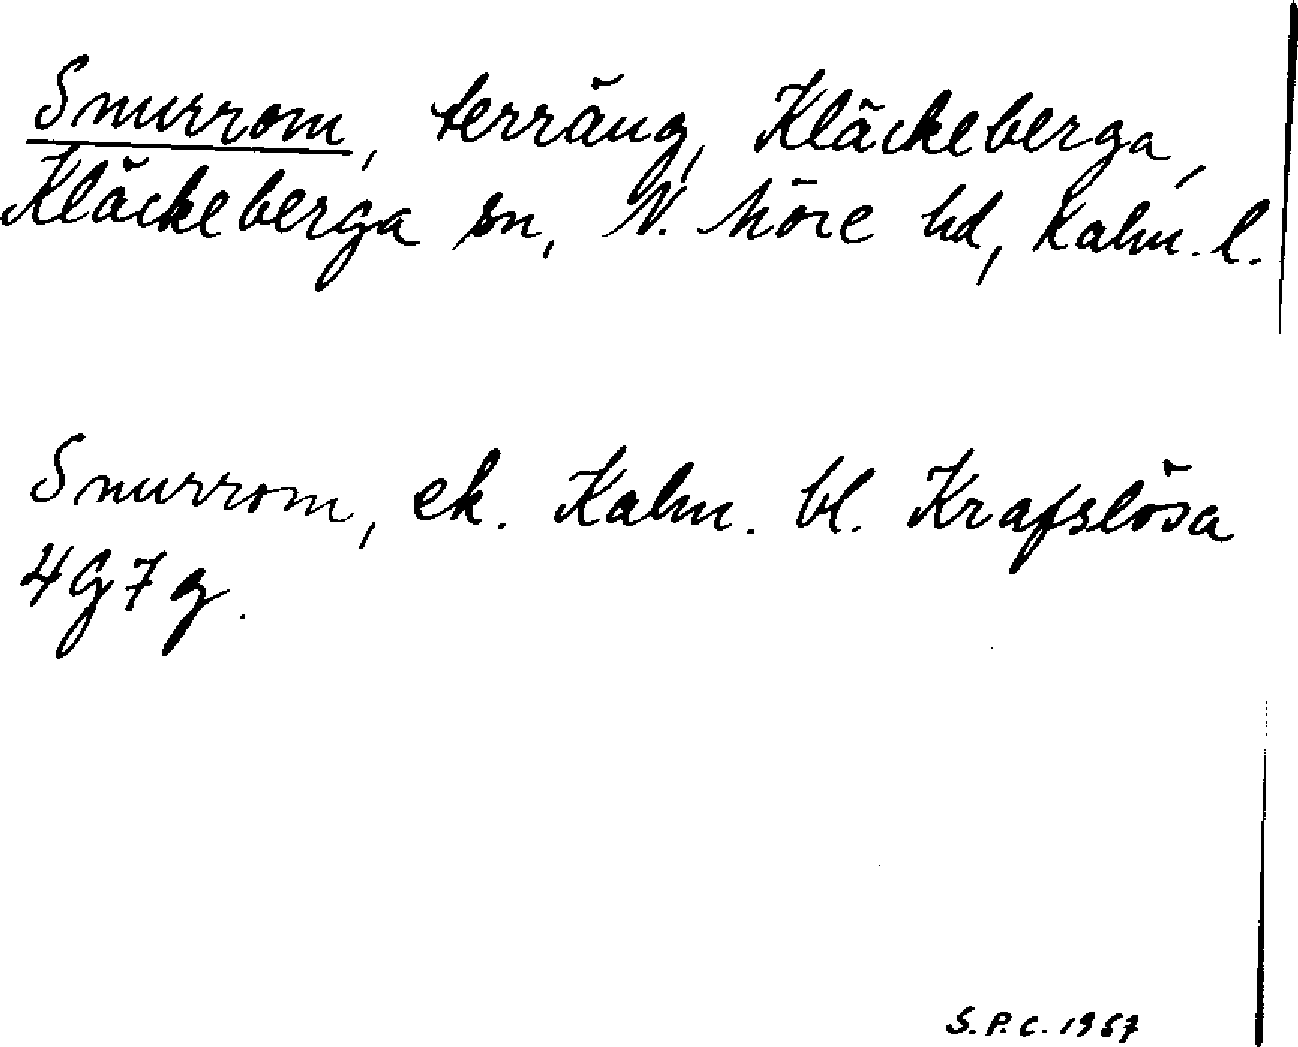 Snurrom, terräng, Kläckeberga,
Kläckeberga sn, N. Möre hd, Kalm. l.
Snurrom, ek. Kalm. bl. Krafslösa
4G7g.
S.P.C. 1967